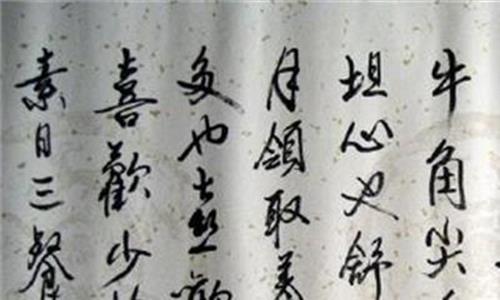 牛角尖
坦心也舒
月領取養
多也喜歡
喜歡少
素日三餐